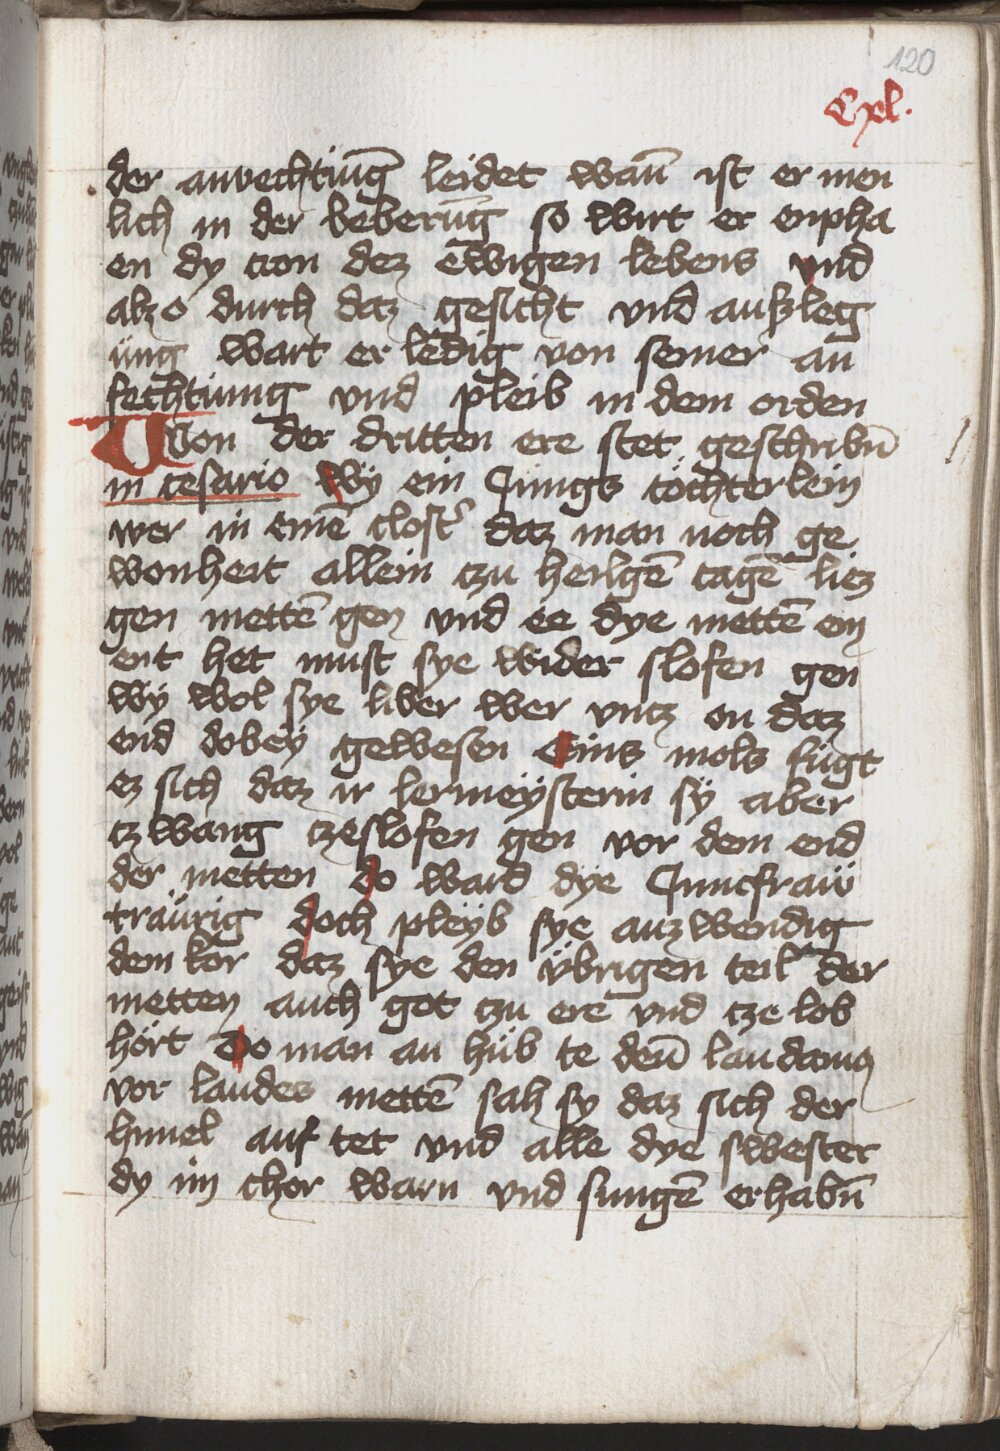 120
Cxl.
der anvechtiūg leidet wañ ist er men
lich in der beberūg so wirt er enpha
en dy cron dez ewigen lebens vnd
alzo durch daz gesicht vnd außleg
ung wart er ledig von seiner an
fechtiung vnd pleib in dem orden
Von der dritten ere stet geschribn̄
in cesario Wÿ ein Jungs töchterlein
wer in einē clost̉ daz man noch ge
wonheit allein czu heilgē tagē liez
gen mettē gen vnd ee dye mettē ein
ent het must sye wider slofen gen
wÿ wol sye liber wer vntz on daz
end dobey gewesen Eins mols fügt
ez sich daz ir lermeÿsterin sÿ aber
czwang czeslofen gen vor dem end
der metten do ward dye Juncfraw
traürig doch pleÿb sye auzwendig
dem kor daz sye den übrigen teil der
metten auch got czu ere vnd cze lob
hört Do man an hüb te deū laudamꝰ
vor laudes mettē sah sy daz sich der
himel auf tet vnd alle dye swester
dy im chor warn vnd sungē erhabn̄